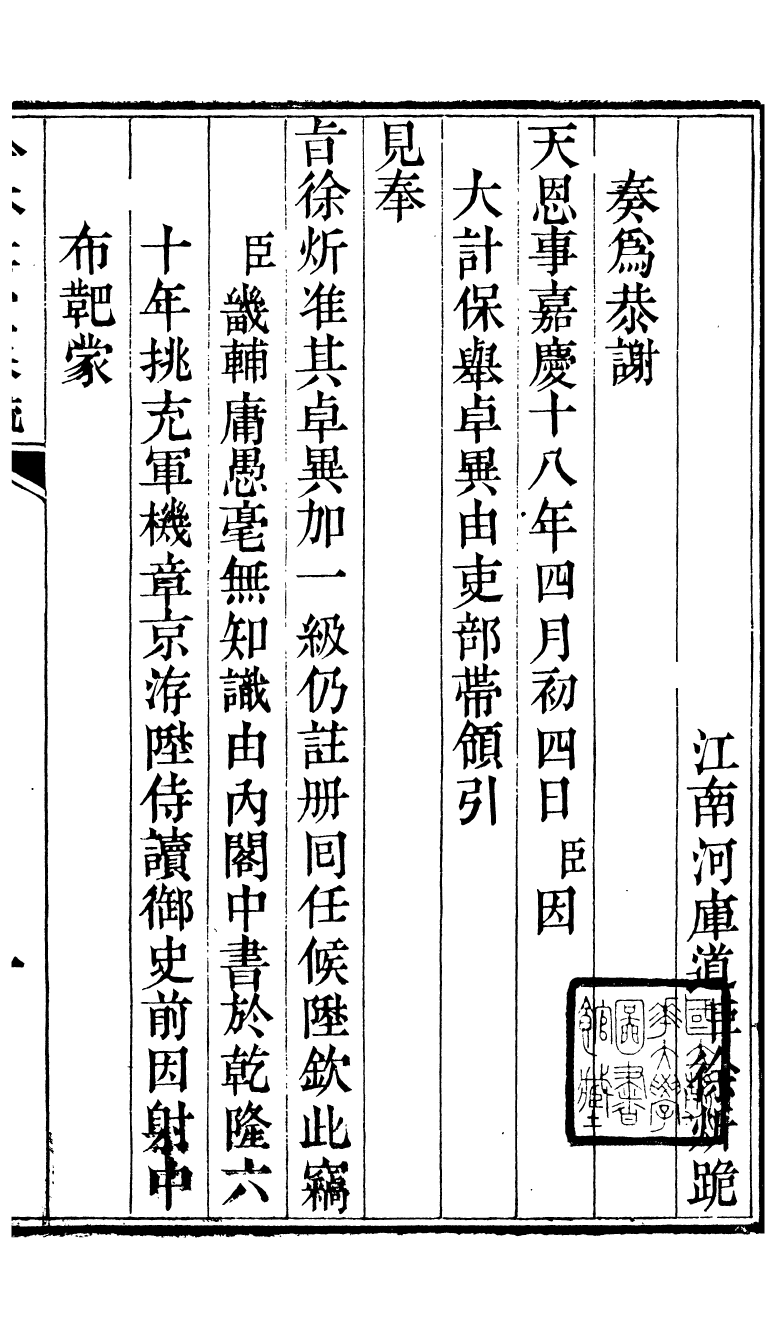 江南河庫道臣徐炘跪
奏爲恭謝
天恩事嘉慶十八年四月初四日臣因
大計保舉卓異由吏部帶領引
見奉
旨徐炘准其卓異加一級仍註册回任候陞欽此竊
臣畿輔庸愚毫無知識由內閣中書於乾隆六
十年挑充軍機章京洊陞侍讀御史前因射中
布靶蒙